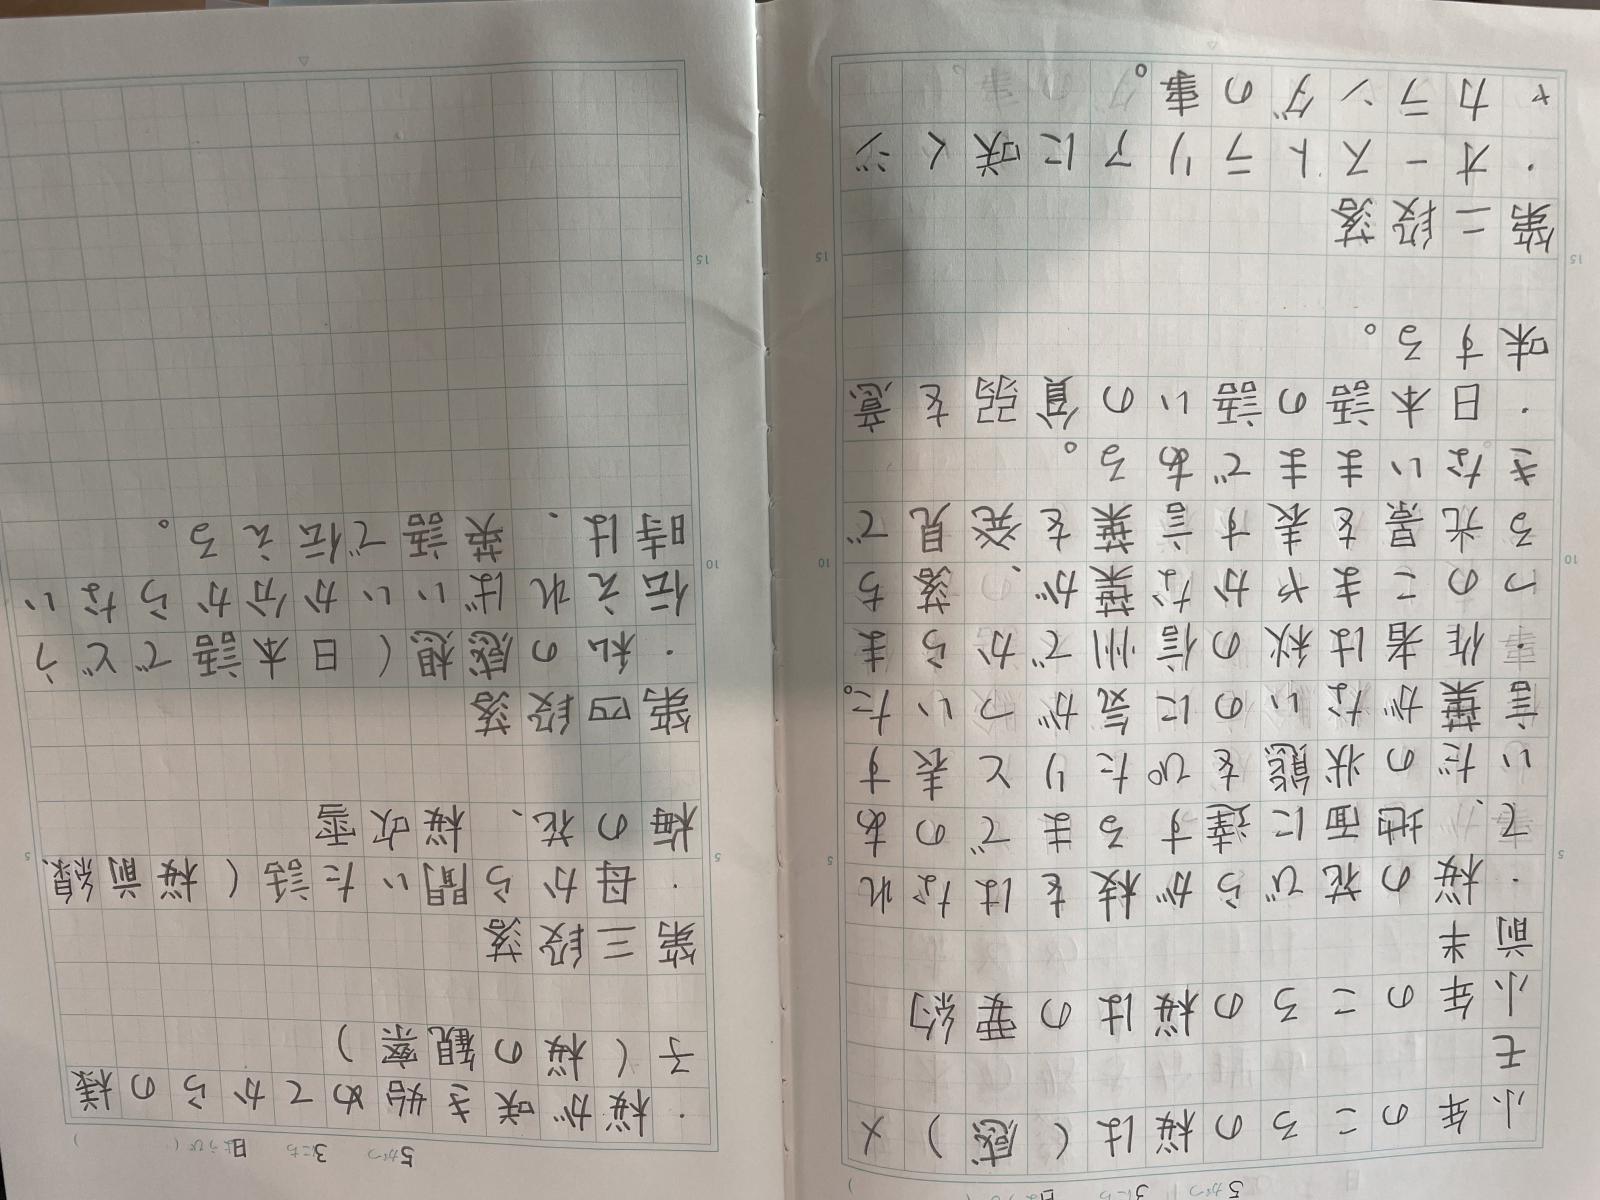 5がつ 3にち 日
小年のころの桜は(感)メ
モ
小年のころの桜はの要約
前半
・桜の花びらが枝をはなれ
て、地面に達するまでのあ
いだの状態をぴたりと表す
言葉がないのに気がついた。
・作者は秋の信州でからま
つのこまやかな葉が、落ち
る光景を表す言葉を発見で
きないままである。
・日本語の語いの貧弱を意
味する。
第二段落
・オーストラリアに咲くジ
ャカランダの事。
5がつ 3にち 日ようび( )
・桜が咲き始めてからの様
子(桜の観察)
第三段落
・母から聞いた話(桜前線、
梅の花、桜吹雪
第四段落
・私の感想(日本語でどう
伝えればいいか分からない
時は、英語で伝える。